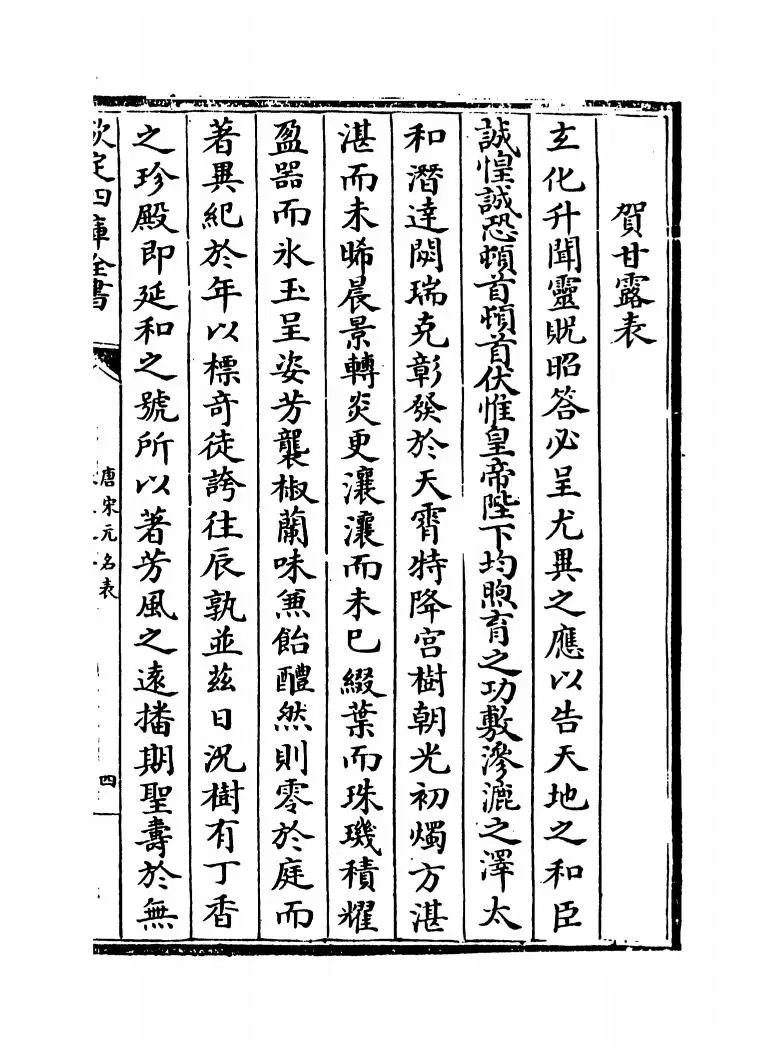 賀甘露表
玄化升聞靈貺昭答必呈尤異之應以告天地之和臣
誠惶誠恐頓首頓首伏惟皇帝陛下均煦育之功敷滲漉之澤太
和潛達闕瑞克彰發於天霄特降宮樹朝光初燭方湛
湛而未晞晨景轉炎更瀼瀼而未巳綴葉而珠璣積耀
盈器而氷玉呈姿芳襲椒蘭味兼飴醴然則零於庭而
著異紀於年以標奇徒誇往辰孰並兹日況樹有丁香
之珍殿即延和之號所以著芳風之遠播期聖壽於無
欽定四庫全書
唐宋元名表
四